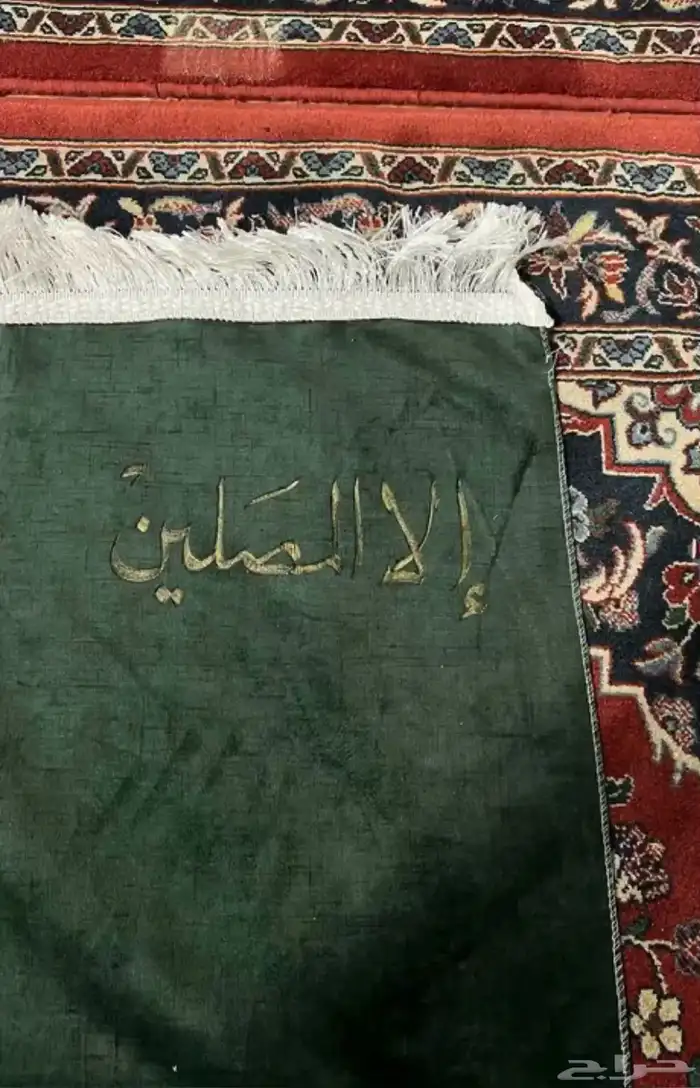 إلا المصَلين
حراج